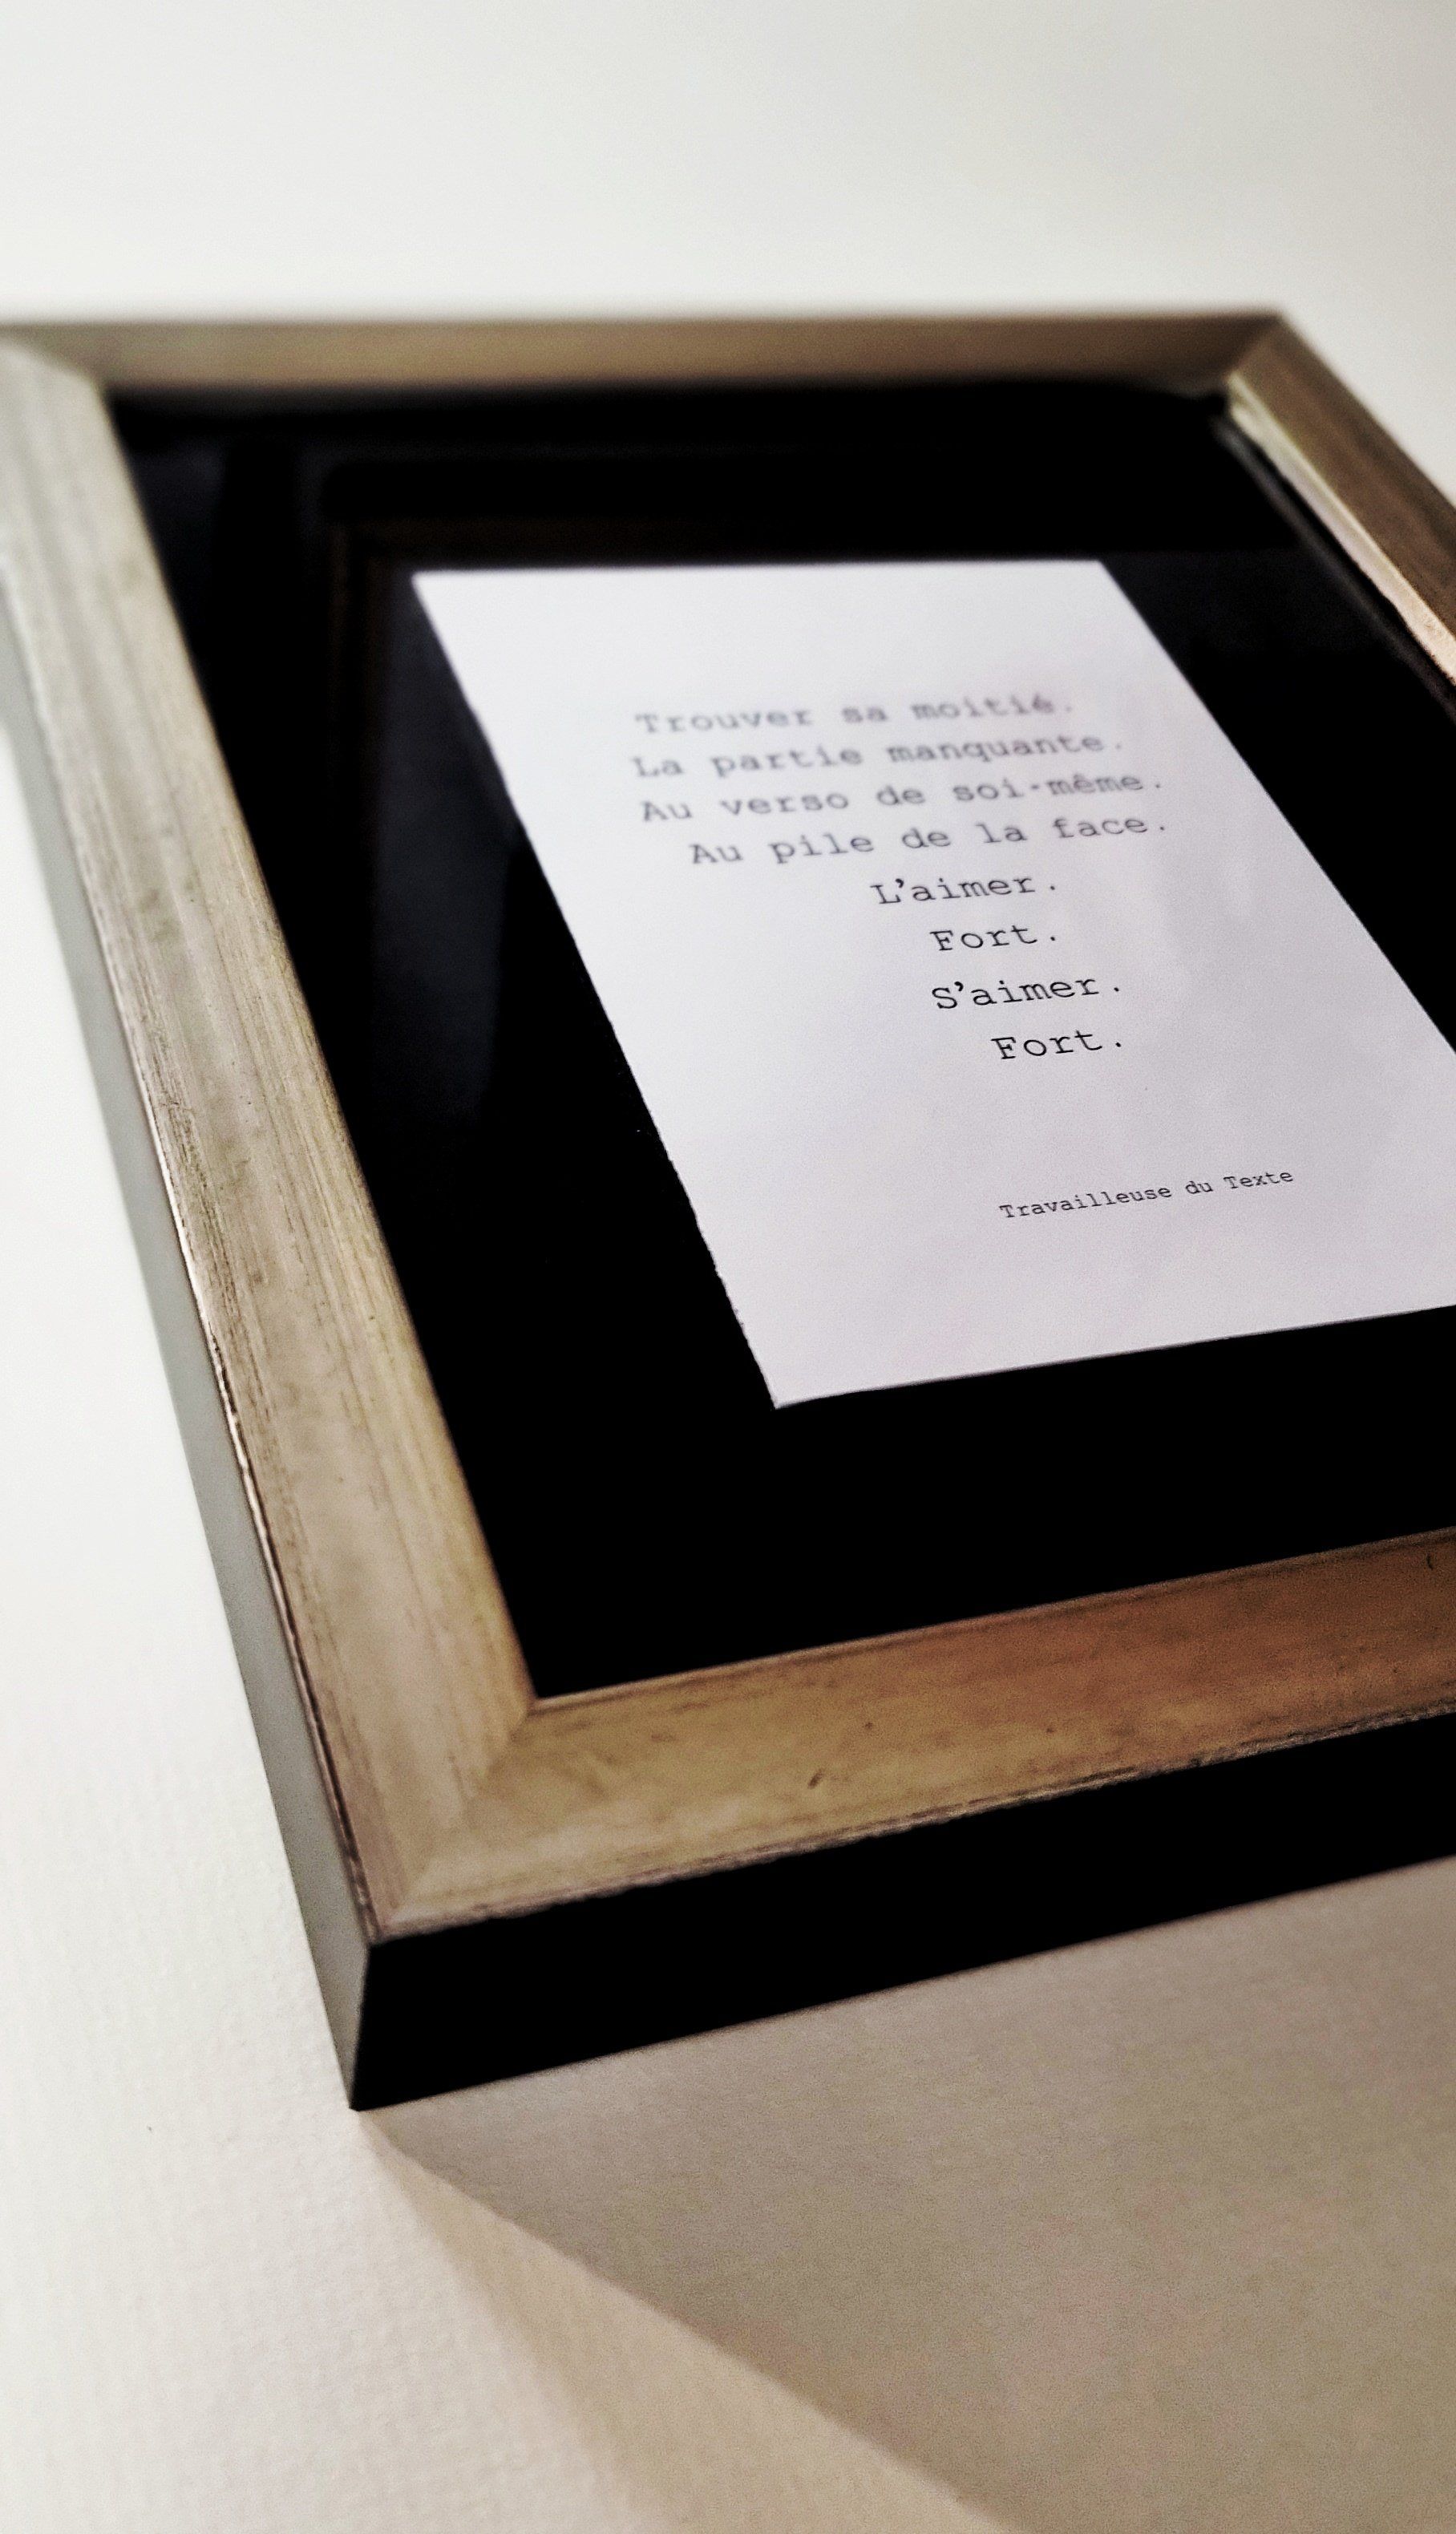 Trouver sa moitié.
La partie manquante.
Au verso de soi-même.
Au pile de la face.
L’aimer.
Fort.
S’aimer.
Fort.
Travailleuse du Texte